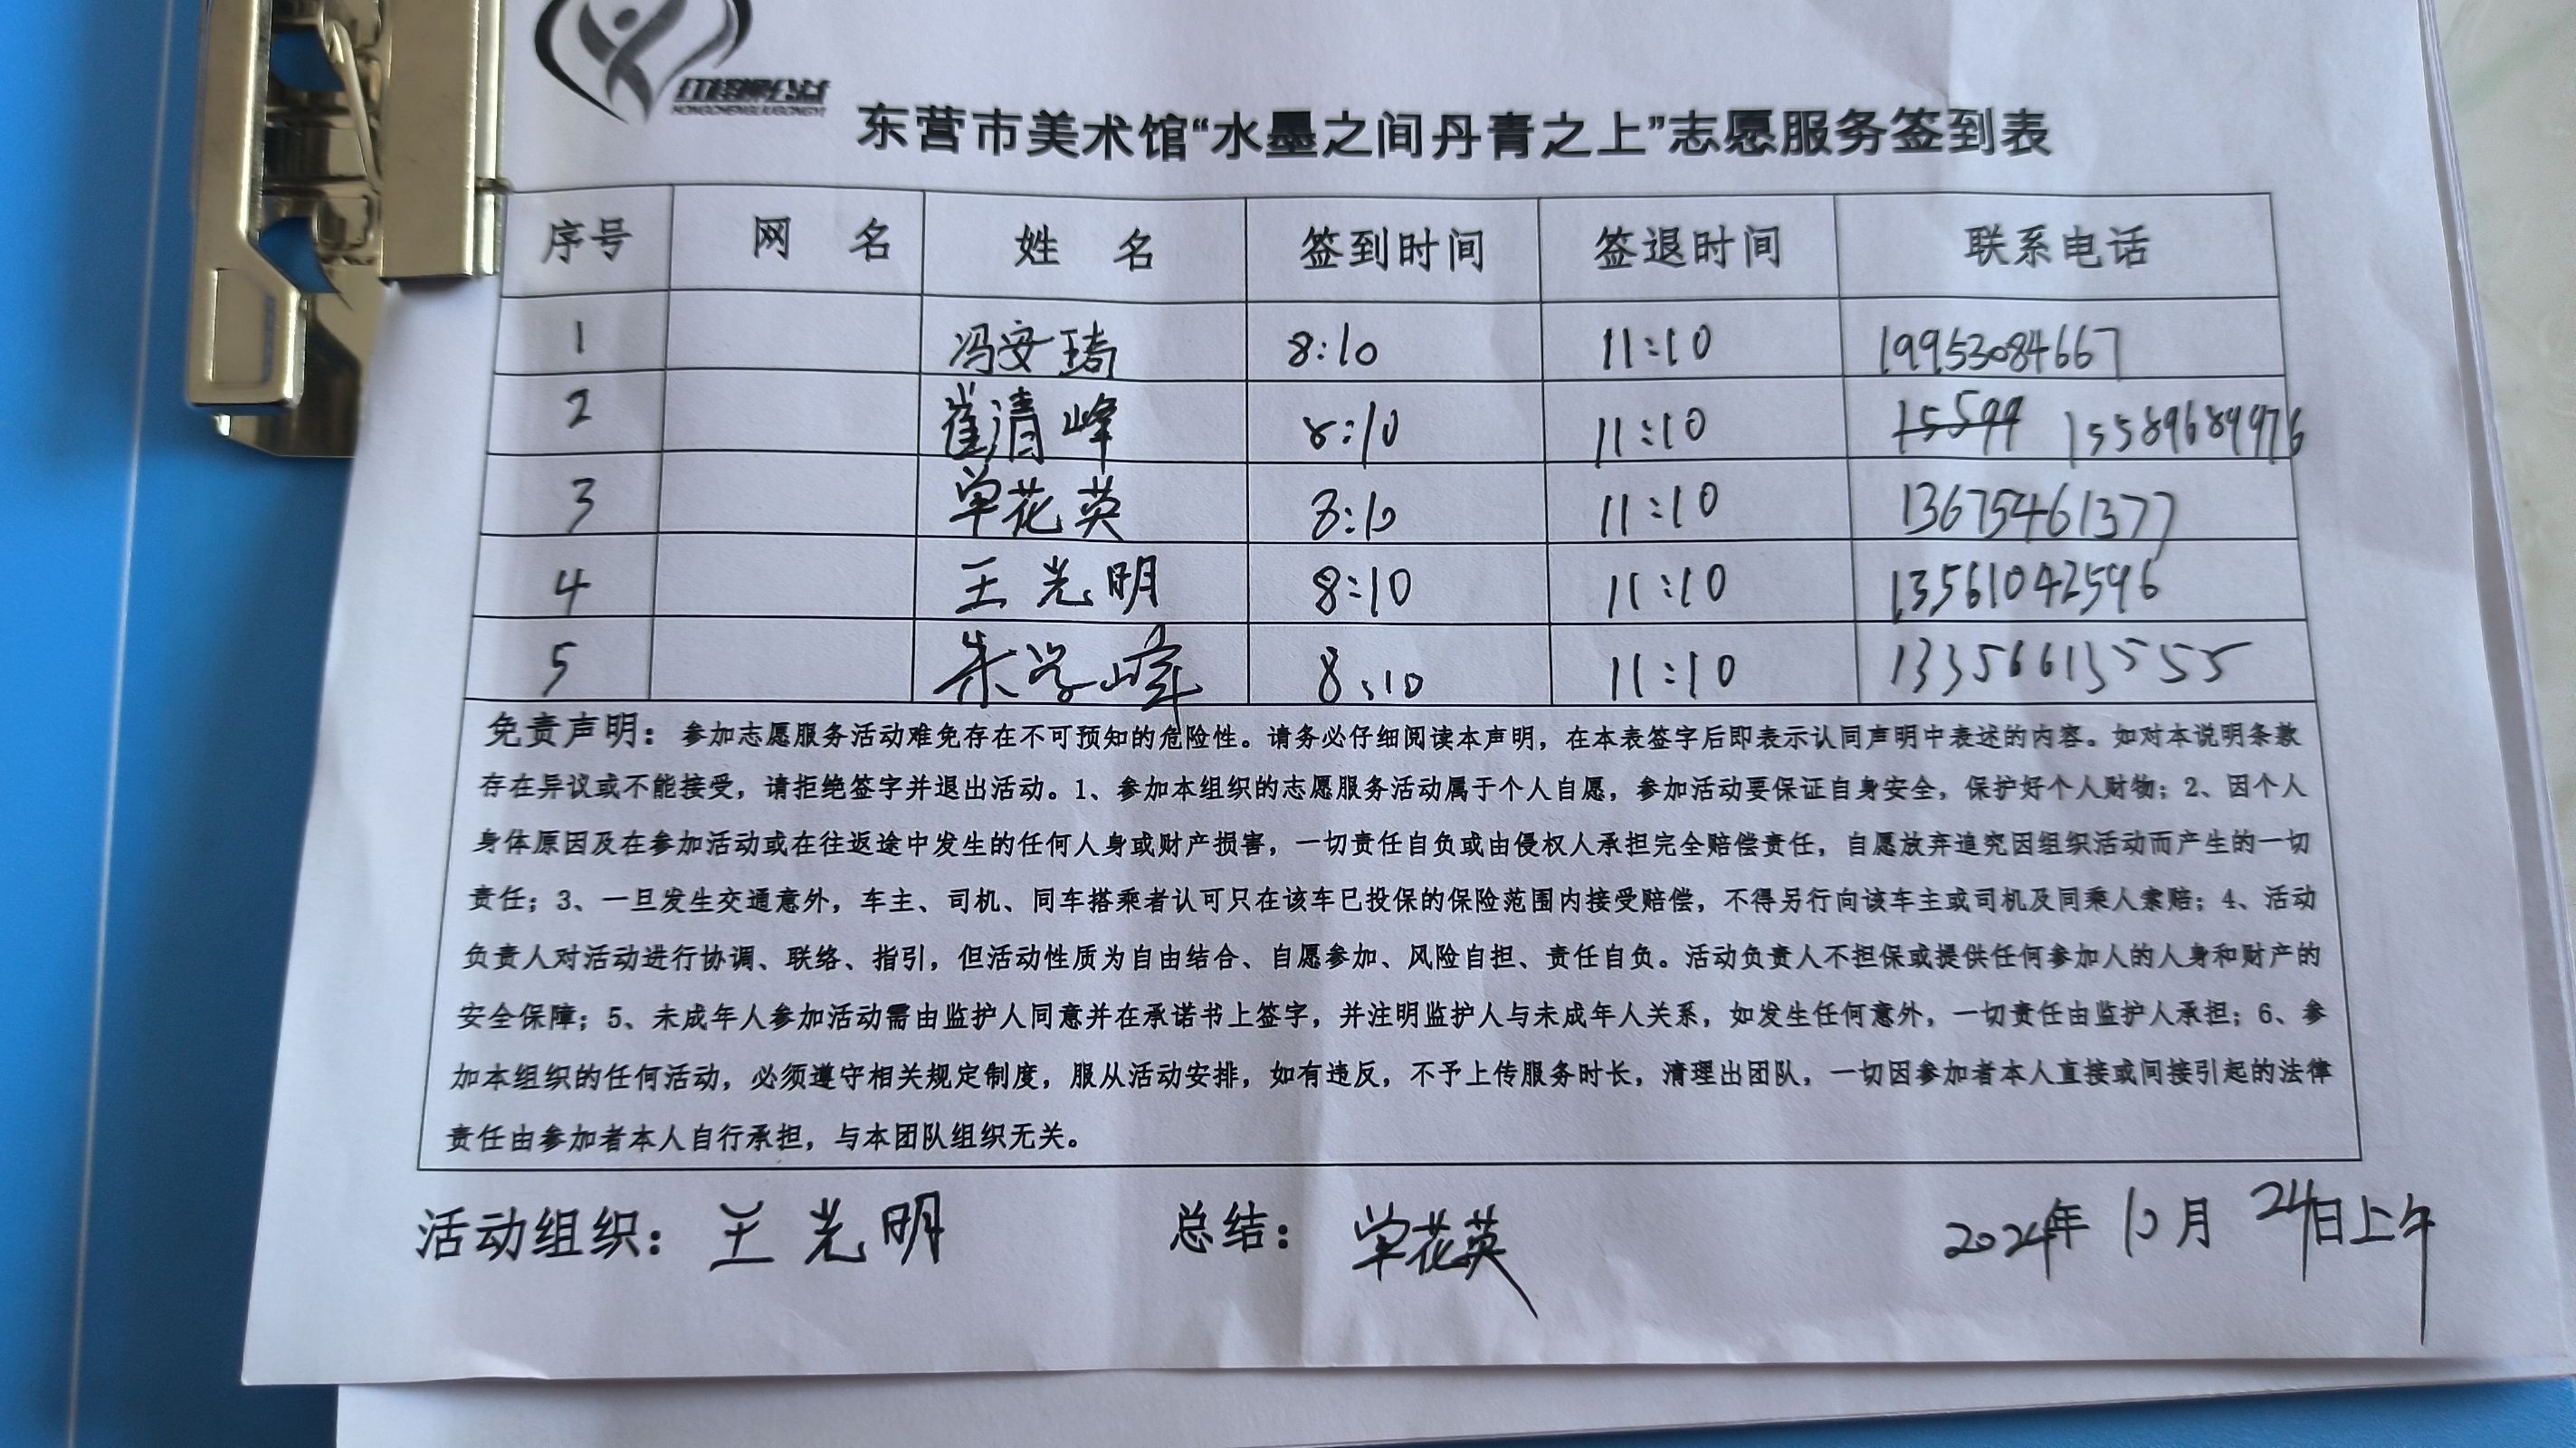 红橙绿公益
HONGCHENGLVGONGYI
东营市美术馆“水墨之间丹青之上”志愿服务签到表
序号 网 名 姓 名 签到时间 签退时间 联系电话
1 冯安琦 8:10 11:10 19953084667
2 崔清峰 8:10 11:10 15599 15589689976
3 单花英 8:10 11:10 13675461377
4 王光明 8:10 11:10 13561042596
5 朱学峰 8:10 11:10 13356613555
免责声明：参加志愿服务活动难免存在不可预知的危险性。请务必仔细阅读本声明，在本表签字后即表示认同声明中表述的内容。如对本说明条款
存在异议或不能接受，请拒绝签字并退出活动。1、参加本组织的志愿服务活动属于个人自愿，参加活动要保证自身安全，保护好个人财物；2、因个人
身体原因及在参加活动或在往返途中发生的任何人身或财产损害，一切责任自负或由侵权人承担完全赔偿责任，自愿放弃追究因组织活动而产生的一切
责任；3、一旦发生交通意外，车主、司机、同车搭乘者认可只在该车已投保的保险范围内接受赔偿，不得另行向该车主或司机及同乘人索赔；4、活动
负责人对活动进行协调、联络、指引，但活动性质为自由结合、自愿参加、风险自担、责任自负。活动负责人不担保或提供任何参加人的人身和财产的
安全保障；5、未成年人参加活动需由监护人同意并在承诺书上签字，并注明监护人与未成年人关系，如发生任何意外，一切责任由监护人承担；6、参
加本组织的任何活动，必须遵守相关规定制度，服从活动安排，如有违反，不予上传服务时长，清理出团队，一切因参加者本人直接或间接引起的法律
责任由参加者本人自行承担，与本团队组织无关。
活动组织：王光明 总结：单花英 2024年10月24日上午